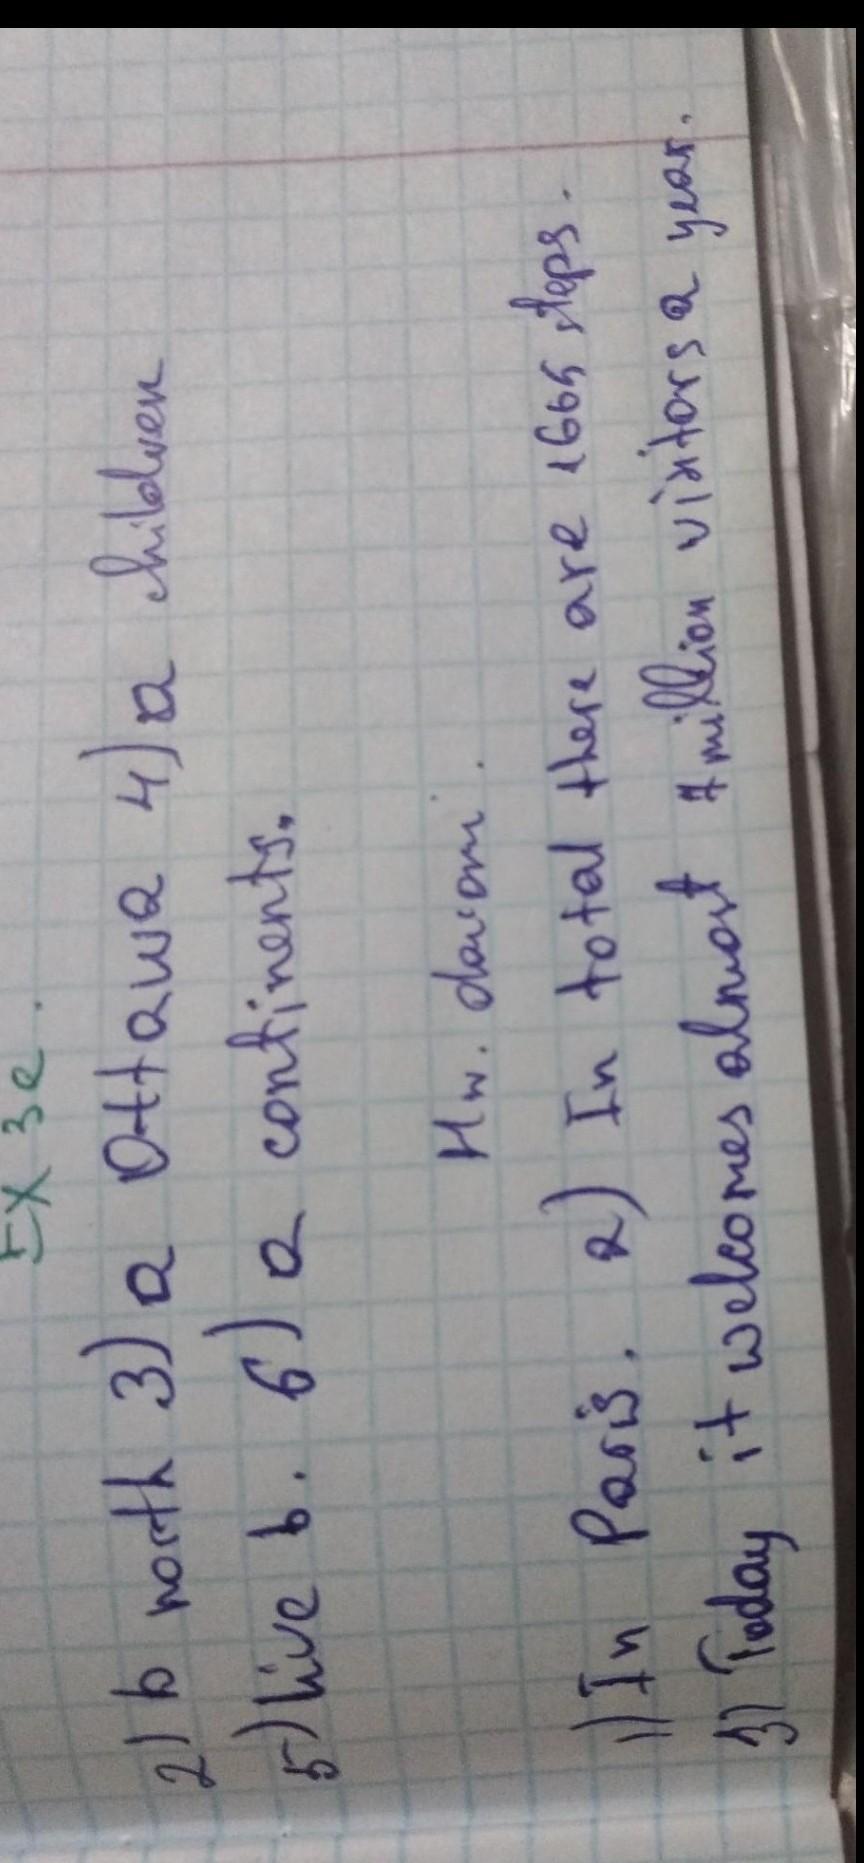 Ex 3e.
2) b north 3) a Ottawa 4) a children
5) live b. 6) a continents.
Hw. davomi.
1) In Paris. 2) In total there are 1665 steps.
3) Today it welcomes almost 7 million visitors a year.